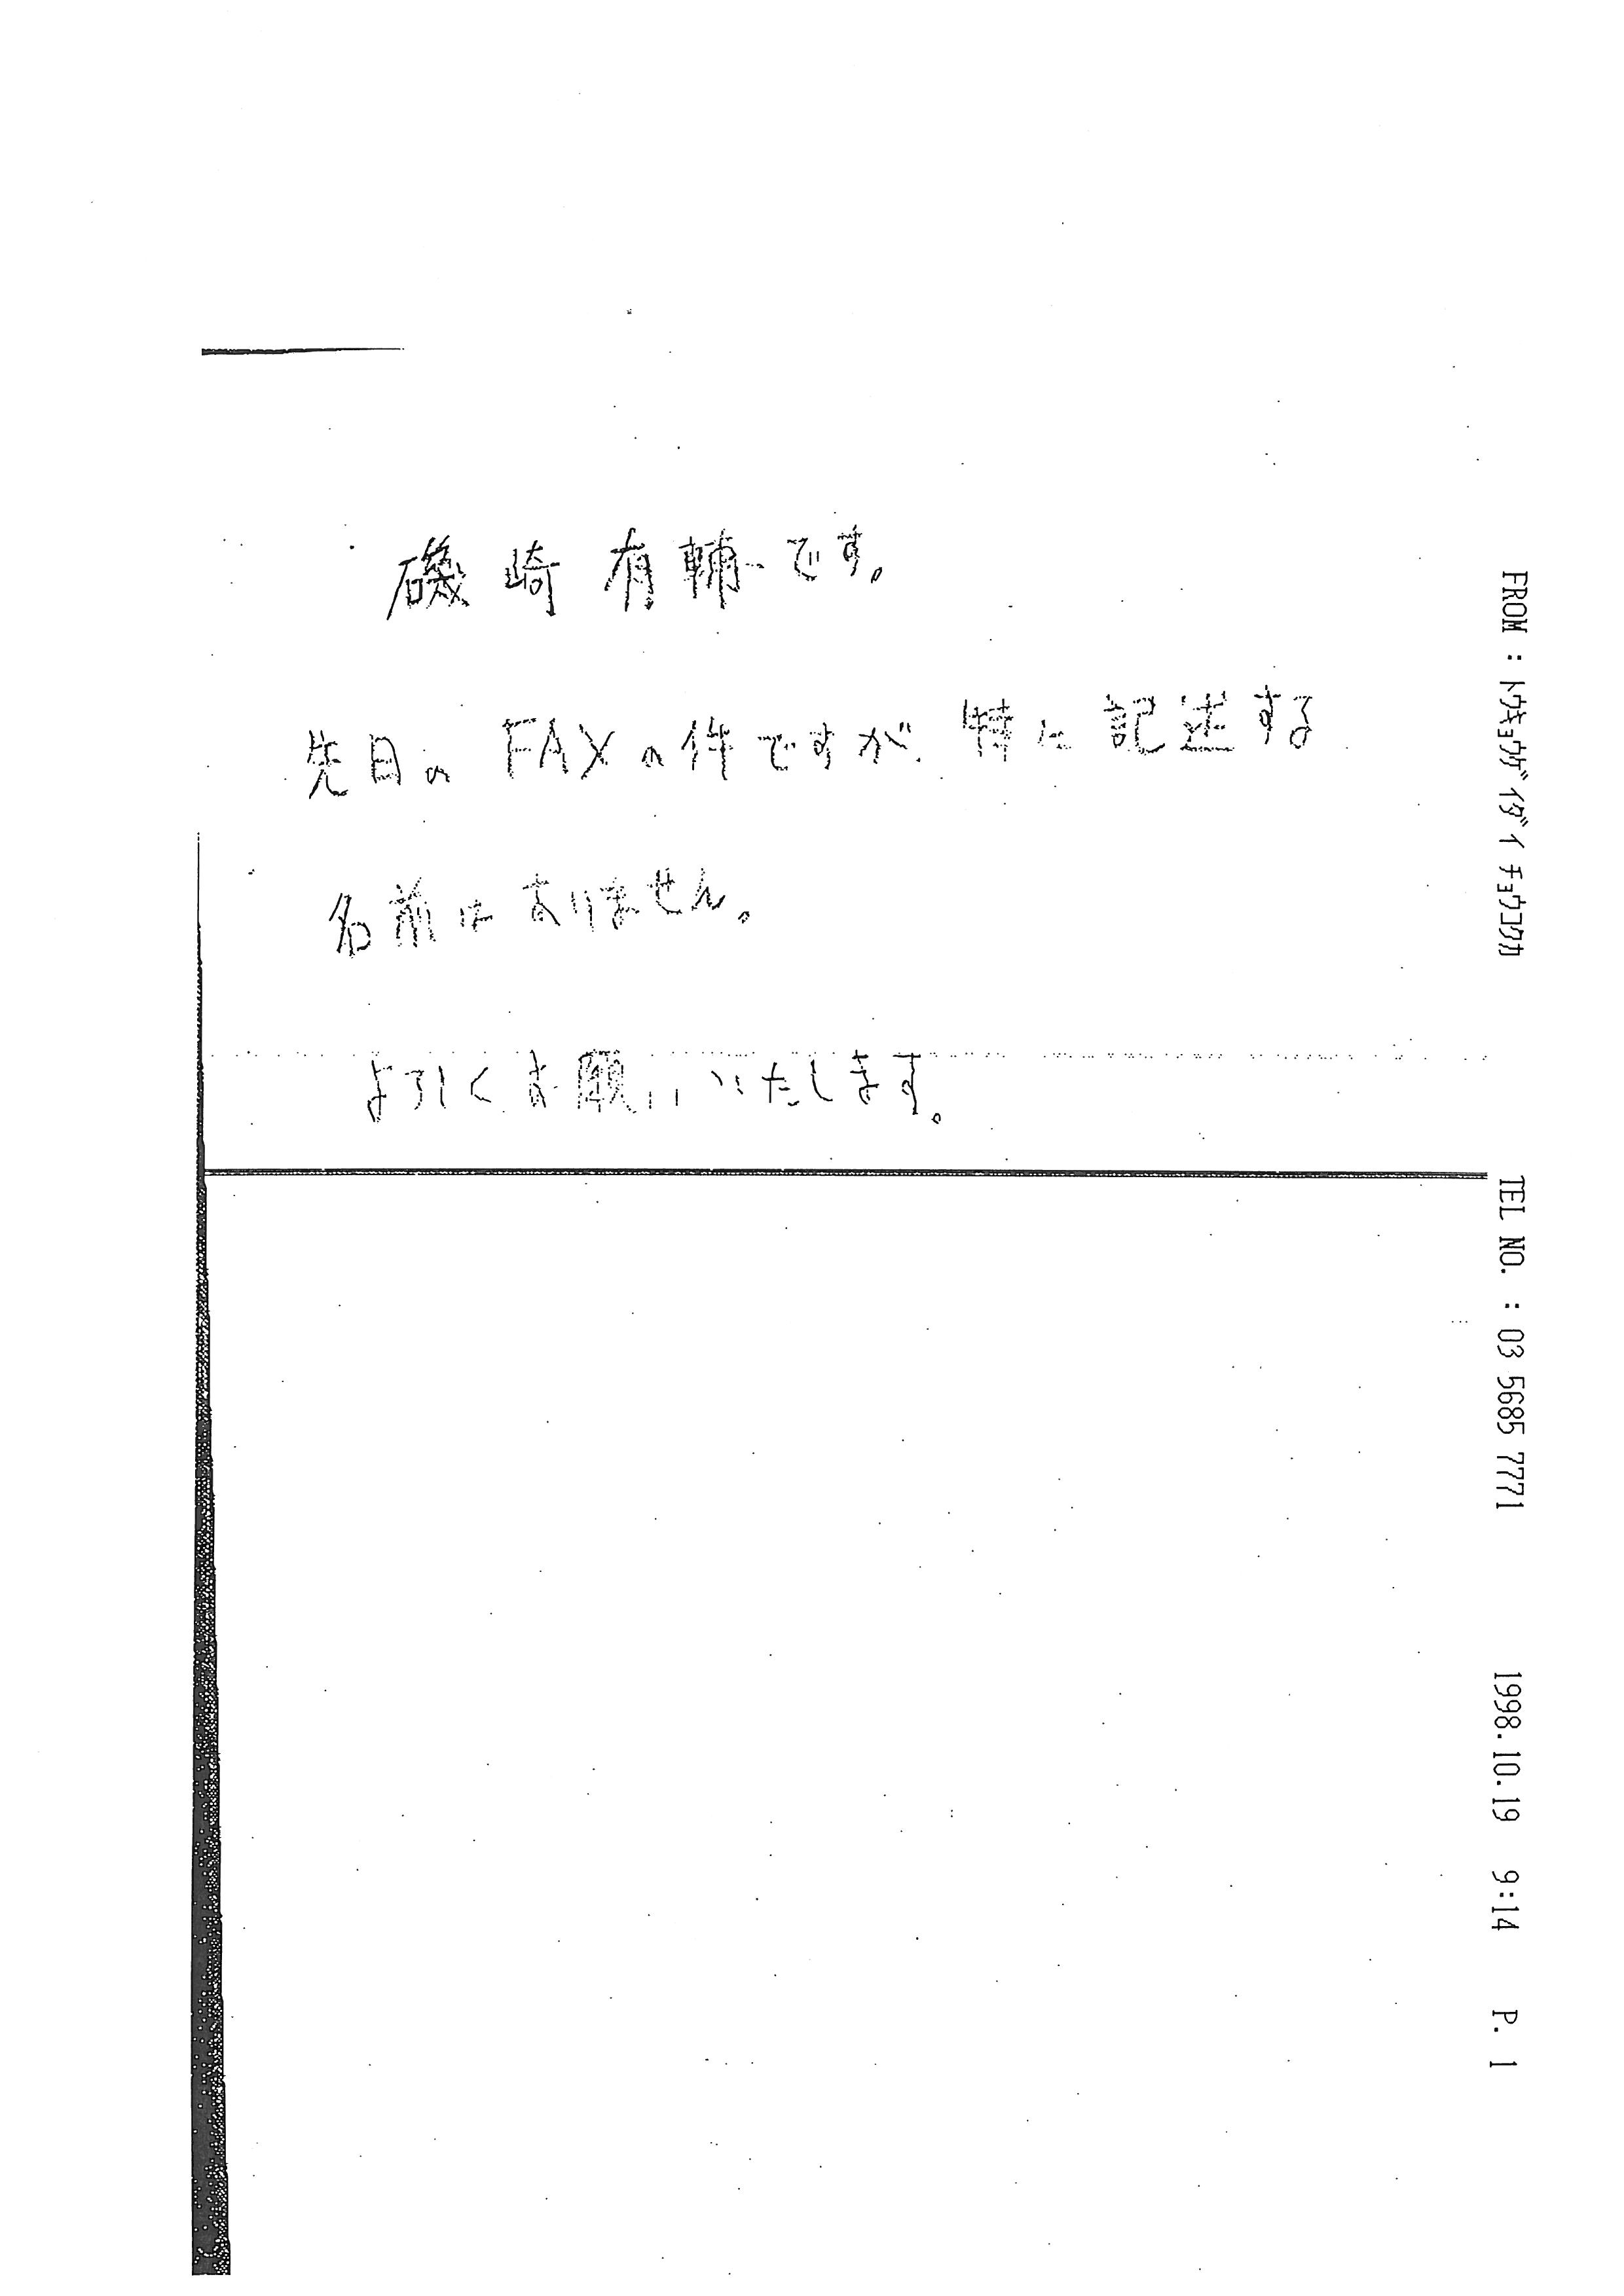 磯崎有輔です。
先日のFAXの件ですが、特に記述する
名前はありません。
よろしくお願いいたします。
FROM : トウキョウゲイダイ チョウコクカ TEL NO. : 03 5685 7771 1998.10.19 9:14 P. 1